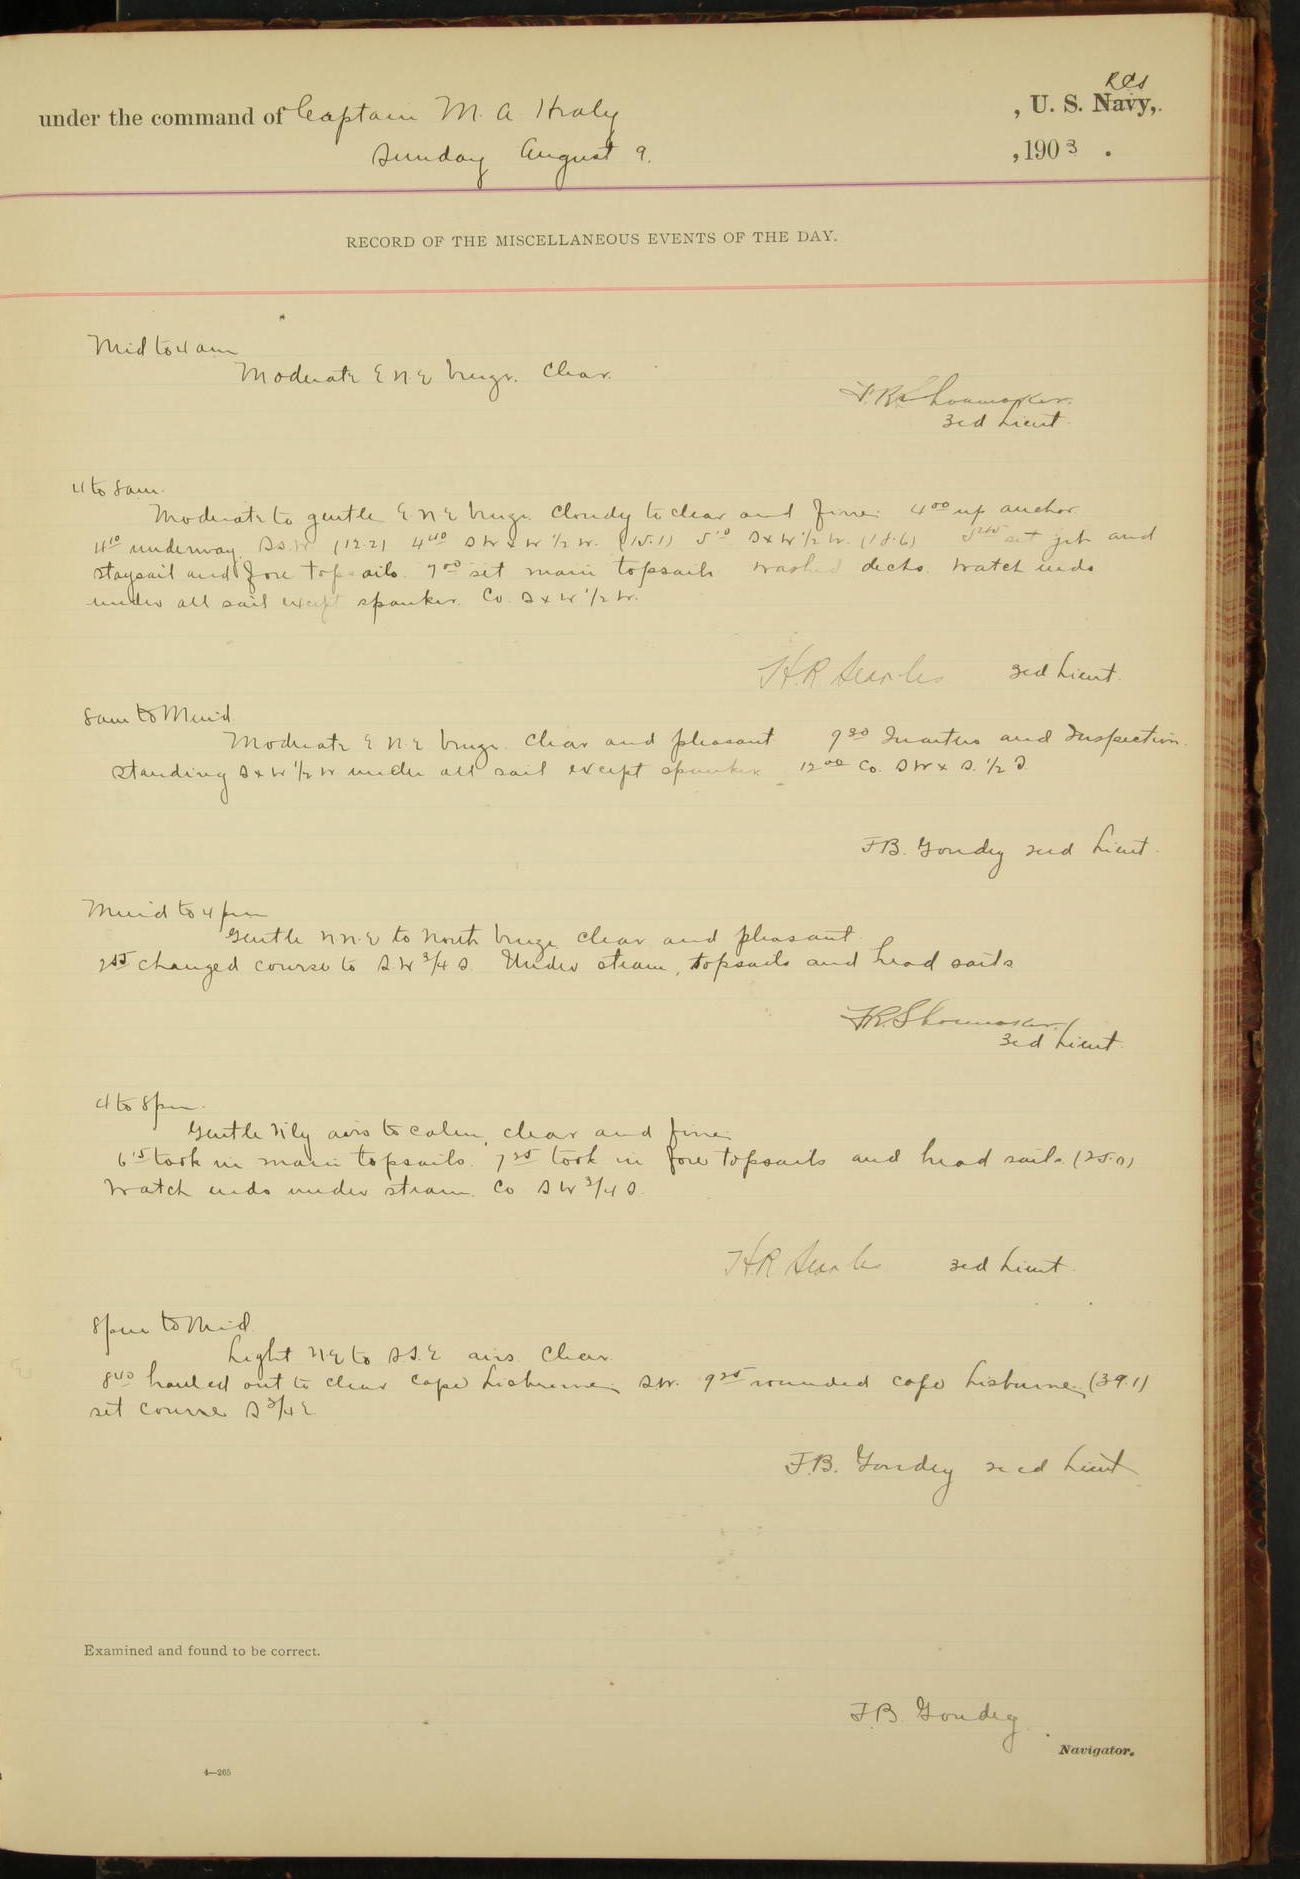 RCS
under the command of Captain M. A. Healy , U. S. Navy,.
Sunday August 9. , 1903 .
RECORD OF THE MISCELLANEOUS EVENTS OF THE DAY.
Mid to 4 am
Moderate E N E breeze. Clear.
F.R. Shoemaker.
3rd Lieut.
4 to 8 am.
Moderate to gentle E N E breeze. Cloudy to clear and fine. 4 00 up anchor
4 10 underway. S S.W. (12.2) 4 40 S W x W 1/2 W. (15.1) 5 10 S x W 1/2 W. (18.6) set jib and
staysail and fore topsails. 7 00 set main topsails washed decks. Watch ends
under all sail except spanker. Co. S x W 1/2 W.
H.R. Searles 3rd Lieut.
8 am to Merid.
Moderate E N E breeze. Clear and pleasant 9 30 Quarters and Inspection.
standing S x W 1/2 W under all sail except spanker 12 00 Co. S W x S. 1/2 S.
F.B. Goudey 2nd Lieut.
Merid to 4 pm
Gentle N N. E to North breeze clear and pleasant.
changed course to S W 3/4 S. Under steam, topsails and head sails
F.R. Shoemaker.
3rd Lieut.
4 to 8 pm.
Gentle N'ly airs to calm, clear and fine.
6 15 took in main topsails. 7 25 took in fore topsails and head sails. (25.0)
Watch ends under steam. Co S W 3/4 S.
H.R. Searles 3rd Lieut.
8 pm to Mid.
Light N E to S S. E airs. Clear.
8 40 hauled out to clear Cape Lisburne S.W. 9 25 rounded Cape Lisburne. (39.1)
set course S 3/4 E
F.B. Goudey 2nd Lieut
Examined and found to be correct.
F.B. Goudey
Navigator.
4—265